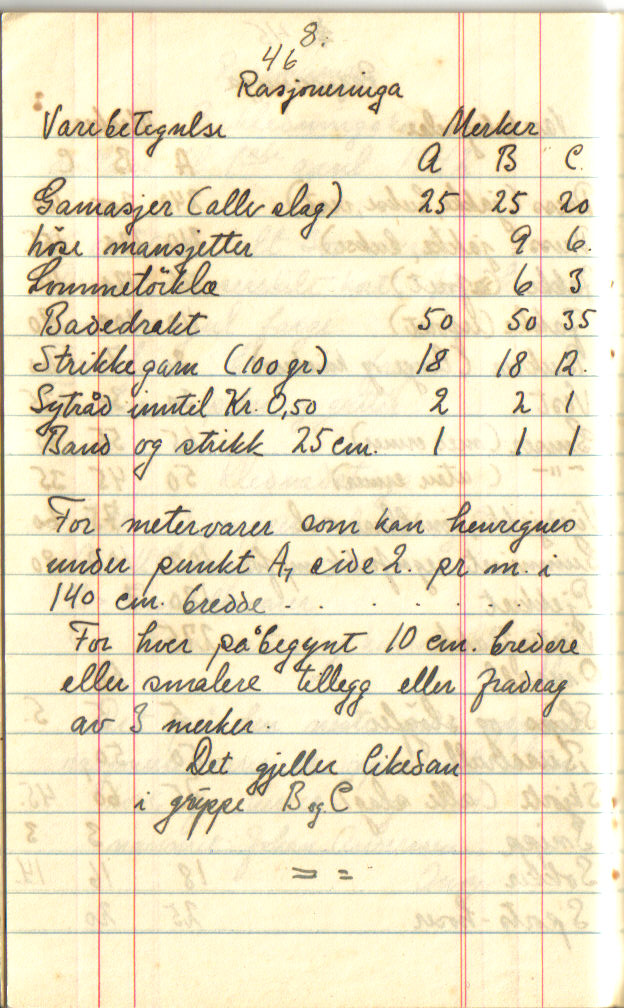 8.
46
Rasjoneringa
Varebetegnelse Merker
A B C.
Gamasjer (aller slag) 25 25 20
löse mansjetter 9 6.
Lommetörklæ 6 3
Badedrakt 50 50 35
Strikkegarn (100 gr) 18 18 12.
Sytråd inntil Kr. 0,50 2 2 1
Band og strikk 25 cm. 1 1 1
For metervarer som kan henregnes
under punkt A, side 2. pr m. i
140 cm. bredde . . . . . .
For hver påbegynt 10 cm. bredere
eller smalere tillegg eller fradrag
av 3 merker.
Det gjeller likedan
i grüppe B og C
= =